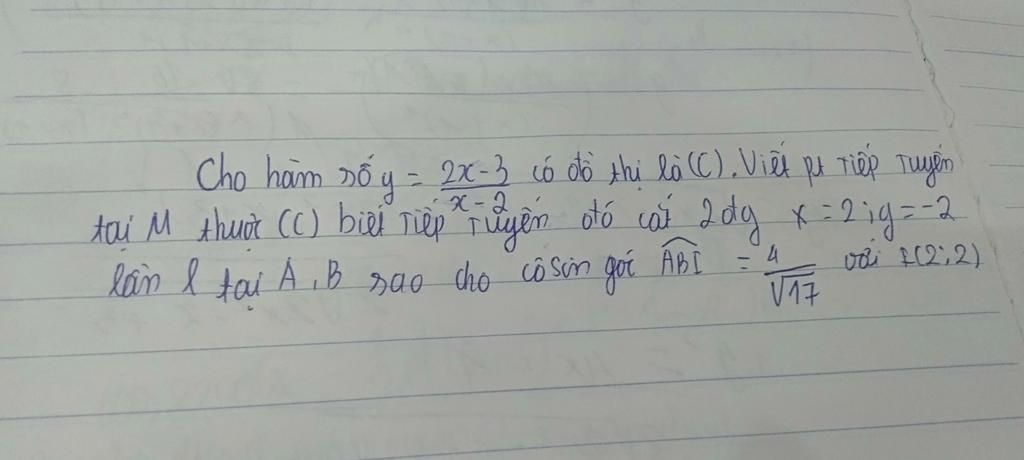 Cho hàm số y = \frac{2x-3}{x-2} có đồ thị là (C). Viết pt tiếp tuyến
tại M thuộc (C) biết tiếp tuyến đó cắt 2 đg x = 2; y = -2
lần l tại A, B sao cho côsin góc \widehat{ABI} = \frac{4}{\sqrt{17}} với I(2;2)